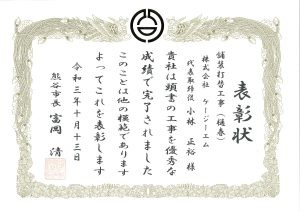 表彰状
舗装打替工事（樋春）
株式会社 ケージーエム
代表取締役 小林 正裕 様
貴社は頭書の工事を優秀な
成績で完了されました
このことは他の模範であります
よってこれを表彰します
令和三年十月十三日
熊谷市長 富岡 清